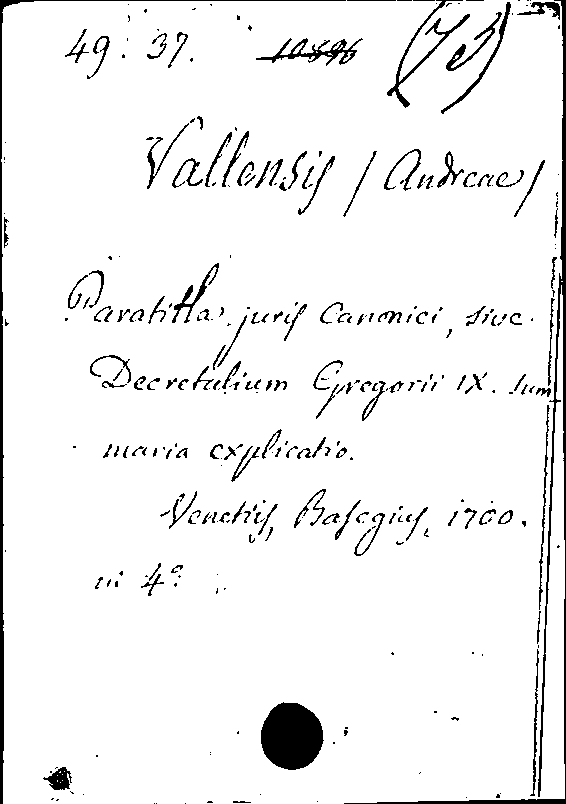 49. 37. 10896 (7e3)
Vallensis / Andreae /
Paratitla juris Canonici, sive
Decretalium Gregorii IX. sum
maria explicatio.
Venetiis, Basegius, 1700.
in 4o.